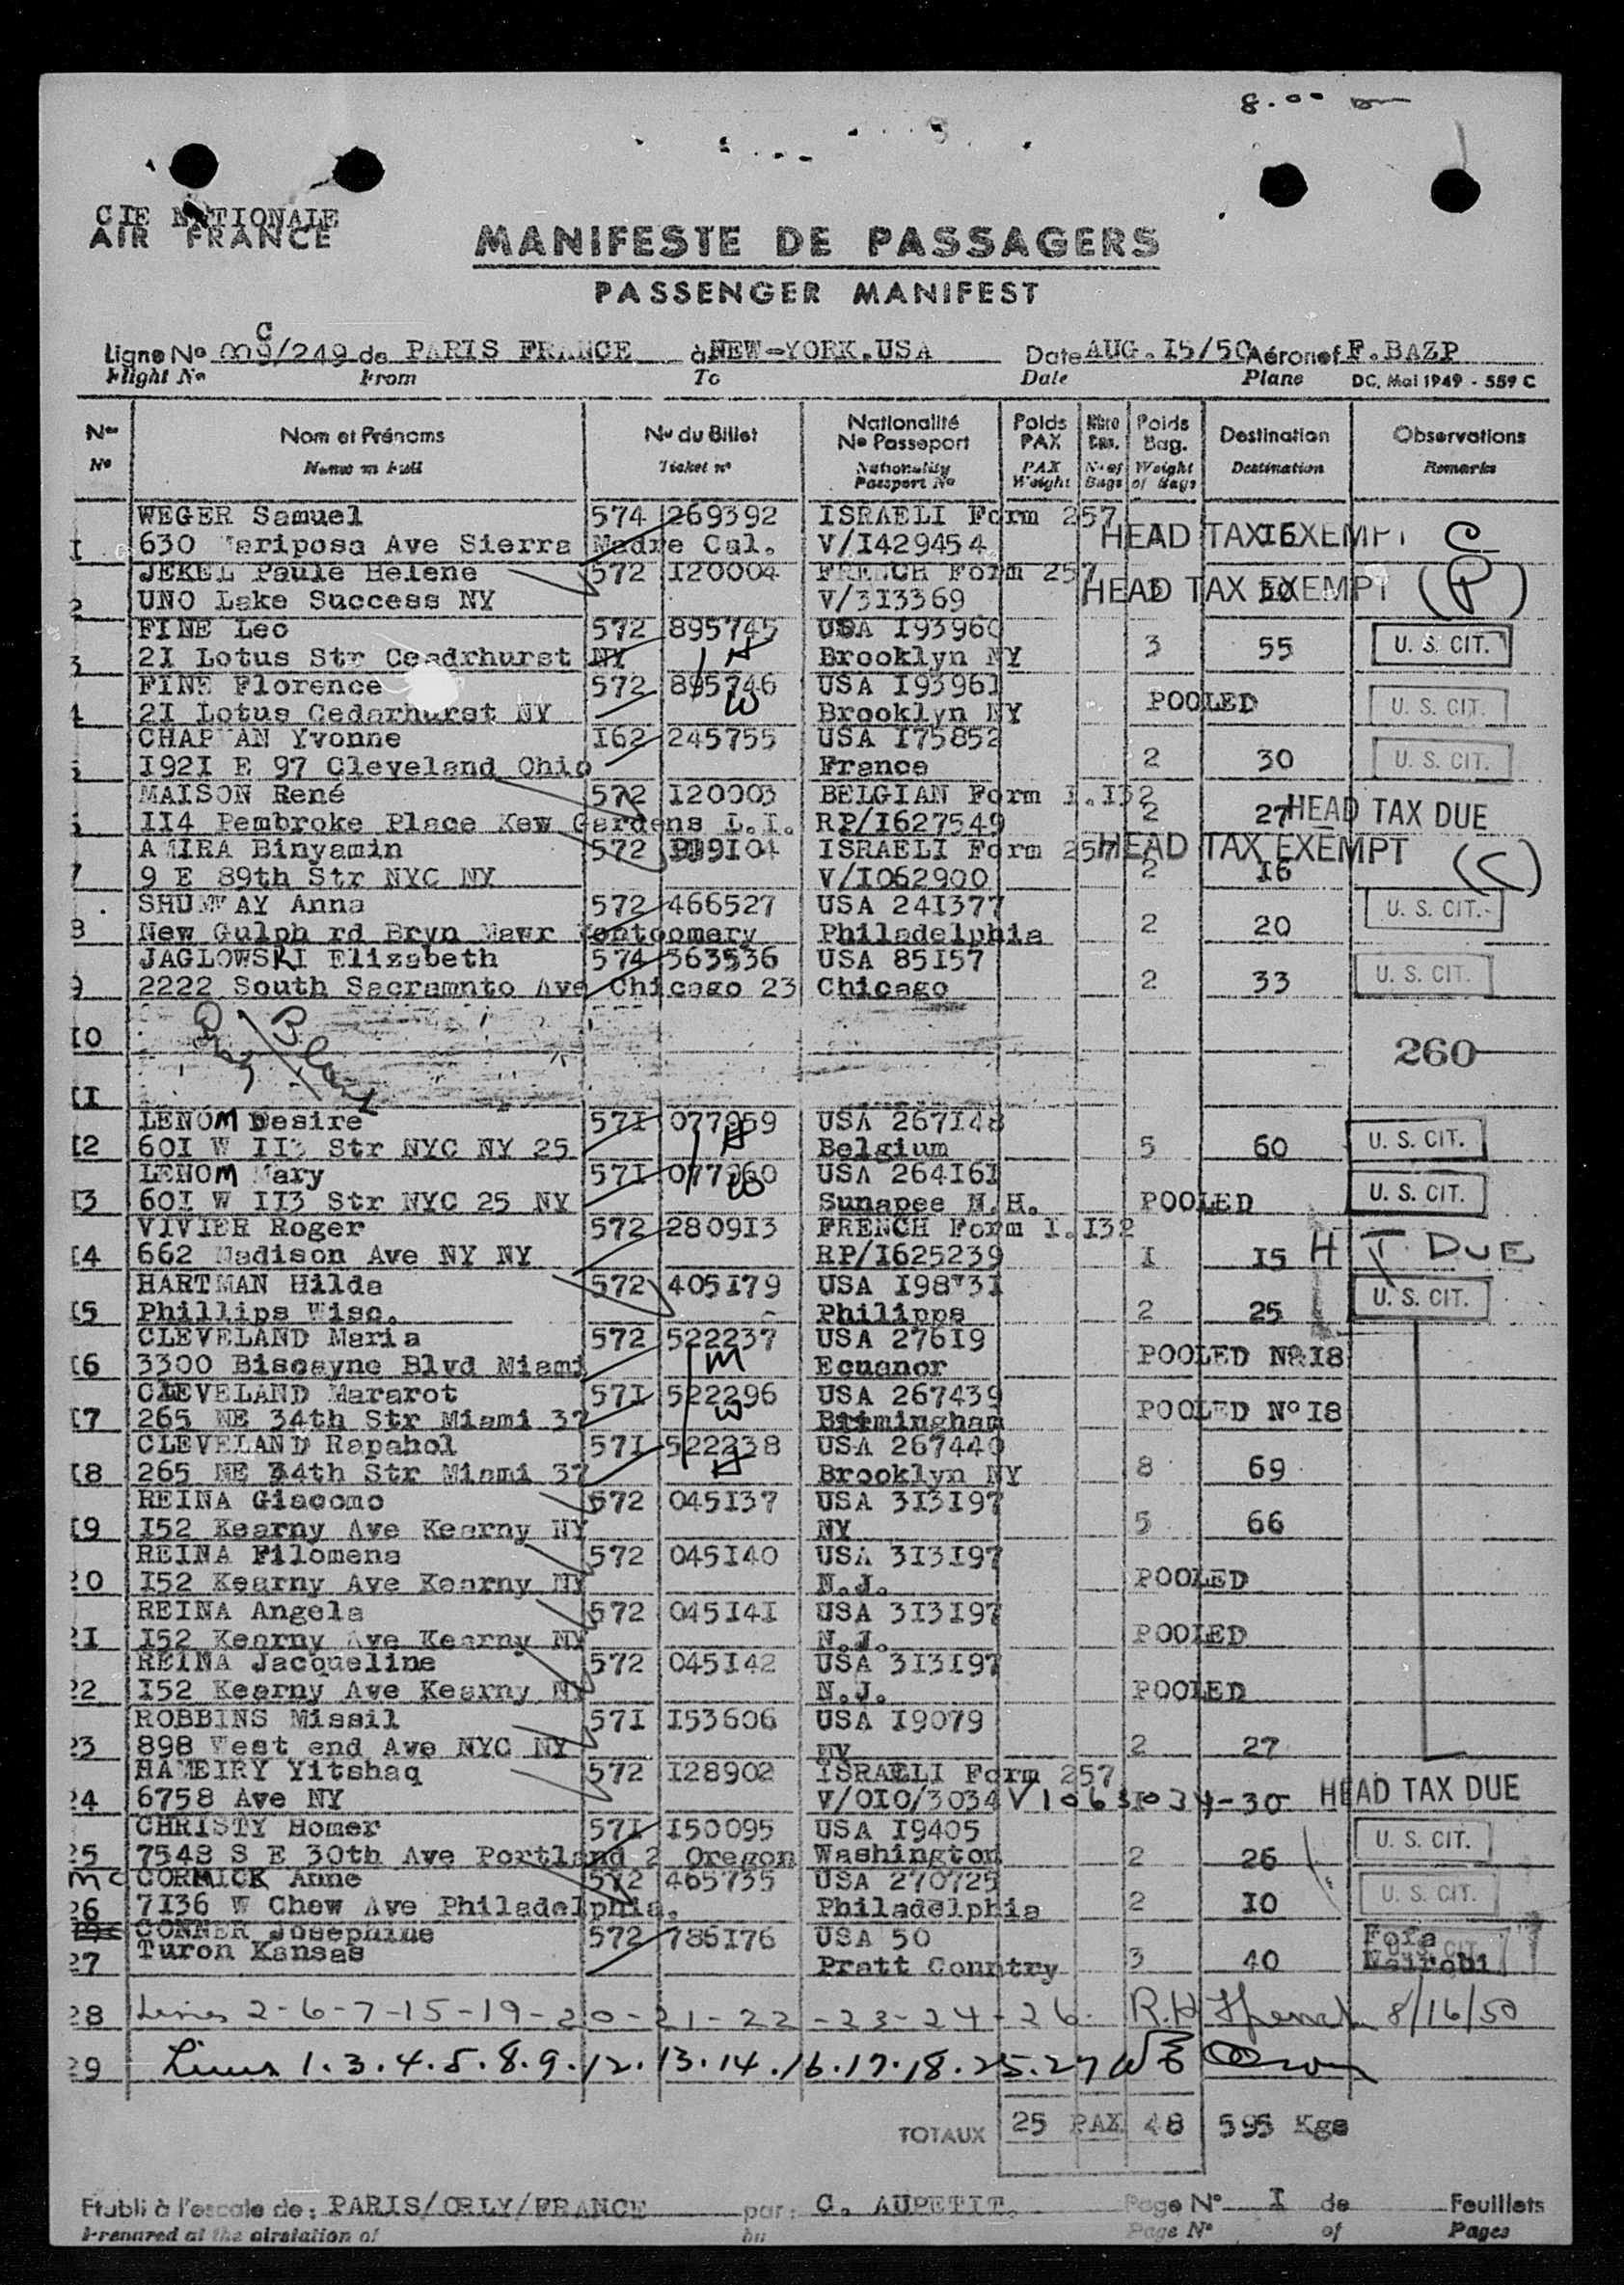 8.00
CIE NATIONALE
AIR FRANCE
MANIFESTE DE PASSAGERS
PASSENGER MANIFEST
Ligne No 009/249 de PARIS FRANCE à NEW-YORK.USA Date AUG.I5/50 Aéronef F.BAZP
C
Flight No From To Date Plane DC. Mai 1949 - 559 C
Nos Nom et Prénoms No du Billet Nationalité No Passeport Poids PAX Nbre Bag. Poids Bag. Destination Observations
No Name in Full Ticket no Nationality Passport No PAX Weight No of Bags Weight of Bags Destination Remarks
WEGER Samuel 574 269392 ISRAELI Form 257
I 630 Mariposa Ave Sierra Madre Cal. V/I429454 I I6 HEAD TAX EXEMPT C
JEKEL Paule Helene 572 I20004 FRENCH Form 257
2 UNO Lake Success NY V/3I3369 30 HEAD TAX EXEMPT (P)
FINE Leo 572 895745 USA I93960
3 2I Lotus Str Ceadrhurst NY H Brooklyn NY 3 55 U. S. CIT.
FINE Florence 572 895746 USA I9396I
4 2I Lotus Cedarhurst NY W Brooklyn NY POOLED U. S. CIT.
CHAPMAN Yvonne I62 245755 USA I75852
5 I92I E 97 Cleveland Ohio France 2 30 U. S. CIT.
MAISON René 572 I20003 BELGIAN Form I.I32
6 II4 Pembroke Place Kew Gardens L.I. RP/I627549 2 27 HEAD TAX DUE
AMIRA Binyamin 572 939I04 ISRAELI Form 257 HEAD TAX EXEMPT
7 9 E 89th Str NYC NY V/I062900 2 I6 (C)
SHUMWAY Anna 572 466527 USA 24I377
8 New Gulph rd Bryn Mawr Montgomary Philadelphia 2 20 U. S. CIT.
JAGLOWSKI Elizabeth 574 363536 USA 85I57
9 2222 South Sacramnto Ave Chicago 23 Chicago 2 33 U. S. CIT.
I0 260
II
LENOM Desire 57I 077959 USA 267I48
I2 60I W II3 Str NYC NY 25 H Belgium 5 60 U. S. CIT.
LENOM Mary 57I 077960 USA 264I6I
I3 60I W II3 Str NYC 25 NY W Sunapee N.H. POOLED U. S. CIT.
VIVIER Roger 572 280913 FRENCH Form I.I32
I4 662 Madison Ave NY NY RP/I625239 I I5 H T. DUE
HARTMAN Hilda 572 405I79 USA I98
I5 Phillips Wisc. Philipps 2 25 U. S. CIT.
CLEVELAND Maria 572 522237 USA 276I9
I6 3300 Biscayne Blvd Miami M Ecuanor POOLED No I8
CLEVELAND Mararot 57I 522296 USA 267439
I7 265 NE 34th Str Miami 37 W Birmingham POOLED No I8
CLEVELAND Rapahol 57I 522238 USA 267440
I8 265 NE 34th Str Miami 37 H Brooklyn NY 8 69
REINA Giacomo 572 045I37 USA 3I3I97
I9 I52 Kearny Ave Kearny NY NY 5 66
REINA Filomena 572 045I40 USA 3I3I97
20 I52 Kearny Ave Kearny NY N.J. POOLED
REINA Angela 572 045I4I USA 3I3I97
2I I52 Kearny Ave Kearny NY N.J. POOLED
REINA Jacqueline 572 045I42 USA 3I3I97
22 I52 Kearny Ave Kearny NY N.J. POOLED
ROBBINS Missil 57I I53606 USA I9079
23 898 West end Ave NYC NY NY 2 27
HAMEIRY Yitshaq 572 I28902 ISRAELI Form 257
24 6758 Ave NY V/0I0/3034 V1063034 30 HEAD TAX DUE
CHRISTY Homer 57I I50095 USA I9405
25 7548 S E 30th Ave Portland 2 Oregon Washington 2 26 U. S. CIT.
Mc CORMICK Anne 572 465735 USA 270725
26 7I36 W Chew Ave Philadelphia. Philadelphia 2 I0 U. S. CIT.
CONNER Josephine 572 785I76 USA 50
27 Turon Kansas Pratt Country 3 40 Nairobi U. S. CIT.
28 Lines 2-6-7-15-19-20-21-22-23-24-26. 8/16/50
29 Lines 1.3.4.5.8.9.12.13.14.16.17.18.25.27
TOTAUX 25 PAX 48 595 Kgs
Etabli à l'escale de: PARIS/ORLY/FRANCE par: C. AUPETIT. Page No I de Feuillets
Prepared at the airstation of by Page No of Pages